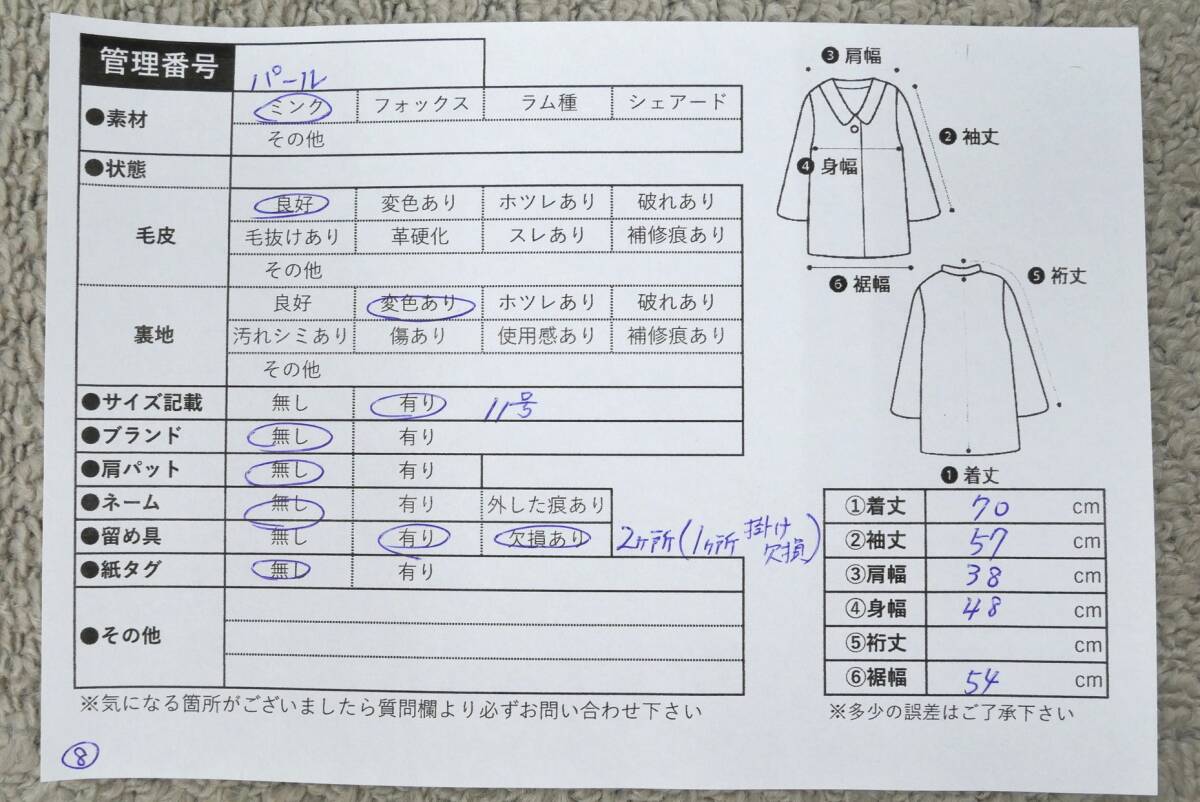 管理番号
パール
●素材 ミンク フォックス ラム種 シェアード
その他
●状態
毛皮 良好 変色あり ホツレあり 破れあり
毛抜けあり 革硬化 スレあり 補修痕あり
その他
裏地 良好 変色あり ホツレあり 破れあり
汚れシミあり 傷あり 使用感あり 補修痕あり
その他
●サイズ記載 無し 有り 11号
●ブランド 無し 有り
●肩パット 無し 有り
●ネーム 無し 有り 外した痕あり
●留め具 無し 有り 欠損あり 2ヶ所(1ヶ所掛け欠損)
●紙タグ 無し 有り
●その他
※気になる箇所がございましたら質問欄より必ずお問い合わせ下さい
⑧
❸肩幅
❷袖丈
❹身幅
❻裾幅
❺裄丈
❶着丈
①着丈 70 cm
②袖丈 57 cm
③肩幅 38 cm
④身幅 48 cm
⑤裄丈 cm
⑥裾幅 54 cm
※多少の誤差はご了承下さい